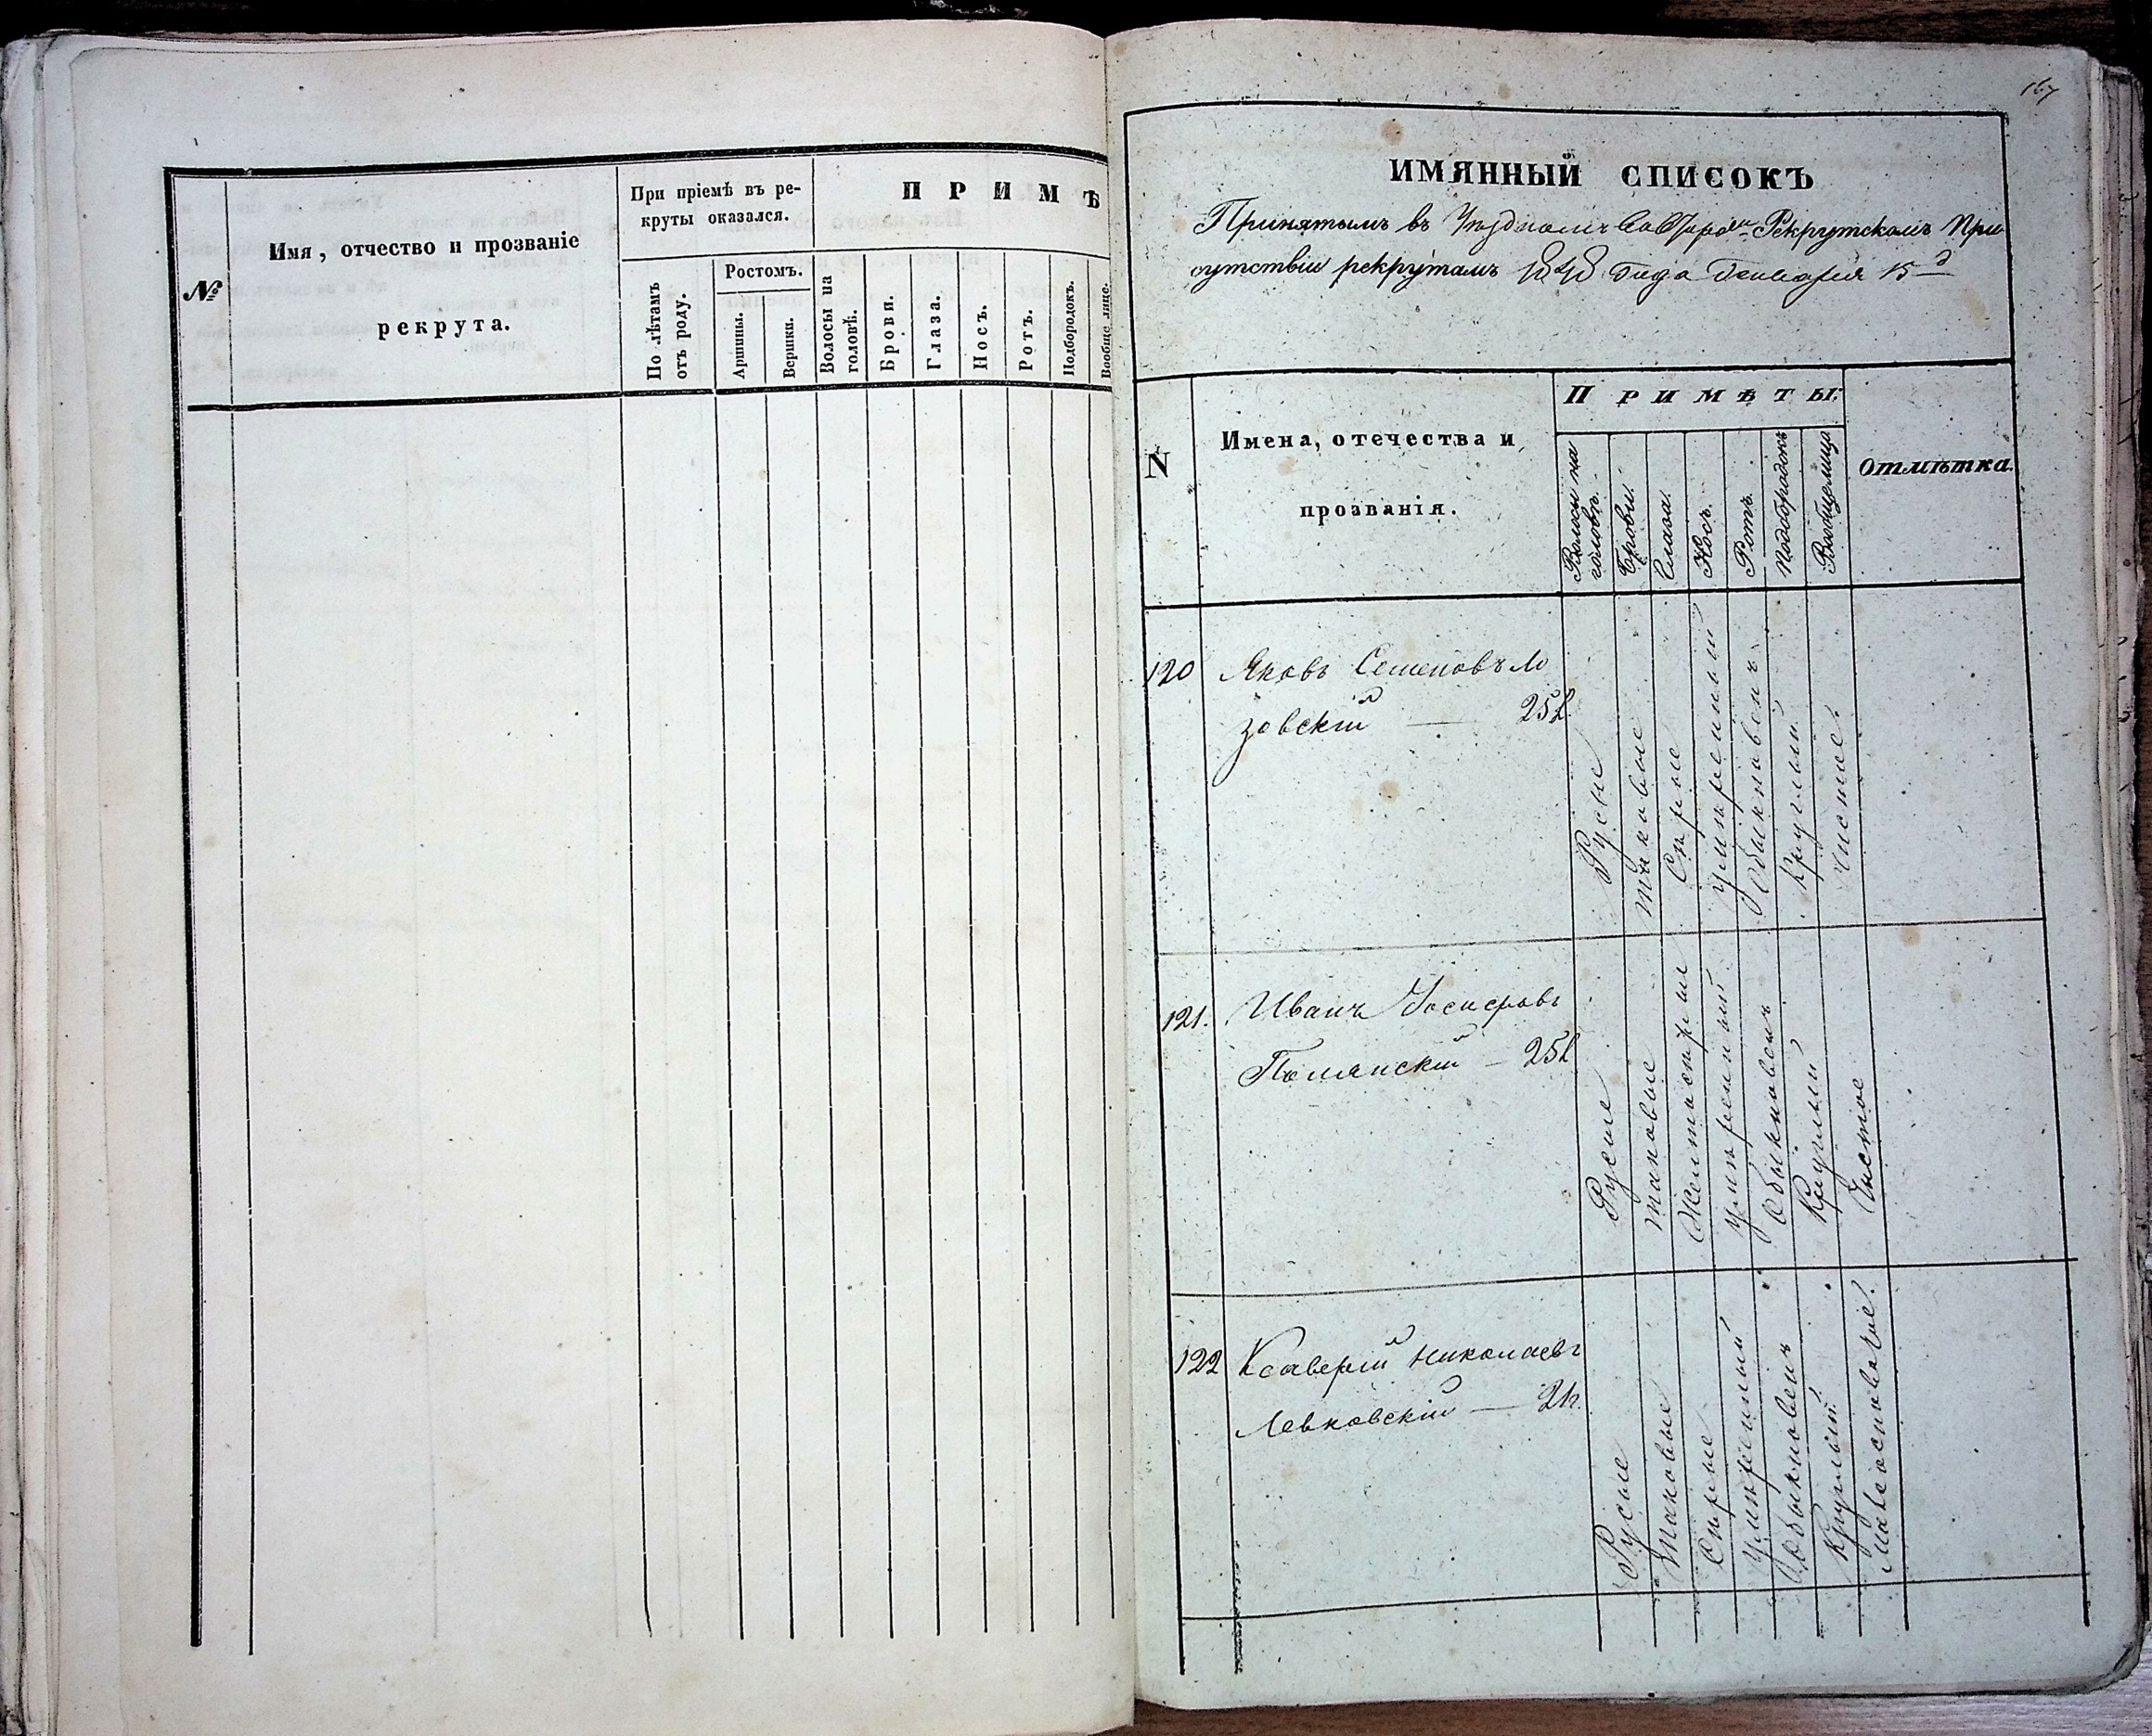 №
Имя, отчество и прозваніе
рекрута.
При пріемѣ въ ре-
круты оказался.
По лѣтамъ
отъ роду.
Ростомъ.
Аршины.
Вершки.
П Р И М Ѣ
Волосы на
головѣ.
Брови.
Глаза.
Носъ.
Ротъ.
Подбородокъ.
Вообще лице.
167
ИМЯННЫЙ СПИСОКЪ
Принятымъ въ Рекрутскомъ При
сутствіи рекрутамъ года Генваря 15
N
Имена, отечества и
прозванія.
П Р И М Ѣ Т Ы:
Волосы на
головѣ.
Брови.
Глаза.
Носъ.
Ротъ.
Подбородокъ
Вообще лица
Отмѣтка.
120
Яковъ Семеновъ Ло
зовскій — 25 л.
Русые
таковые
Сѣрые
умѣренный
Обыкновенъ.
Круглый
Чистое
121.
Иванъ Іосифовъ
— 25 л
Русые
таковые
Желтосѣрые
умѣренный
Обыкновенъ
Круглый
Чистое
122
Ксаверій Николаевъ
Левковскій — 21 г.
Русые
Таковые
Сѣрые
Умѣренный
Обыкновенъ
Круглый